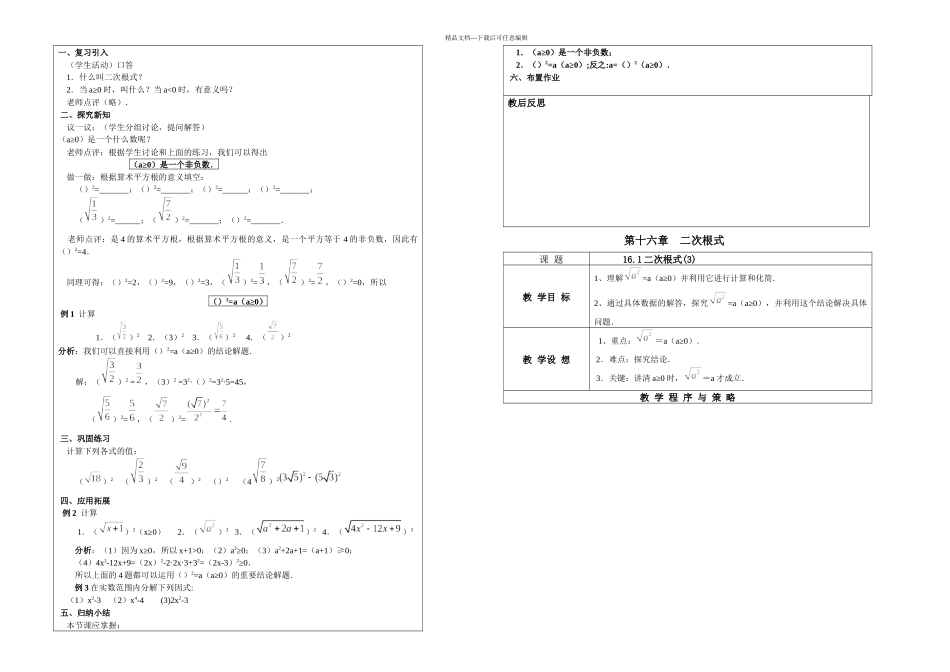 精品文档---下载后可任意编辑
一、复习引入
（学生活动）口答
1．什么叫二次根式？
2．当a≥0时，叫什么？当a<0时，有意义吗？
老师点评（略）．
二、探究新知
议一议：（学生分组讨论，提问解答）
（a≥0）是一个什么数呢？
老师点评：根据学生讨论和上面的练习，我们可以得出
（a≥0）是一个非负数．
做一做：根据算术平方根的意义填空：
（）²=_______；（）²=_______；（）²=______；（）²=_______；
（√(1/3)）²=______；（√(7/2)）²=_______；（）²=_______．
老师点评：是4的算术平方根，根据算术平方根的意义，是一个平方等于4的非负数，因此有
（）²=4．
同理可得：（）²=2，（）²=9，（）²=3，（√(1/3)）²=1/3，（√(7/2)）²=7/2，（）²=0，所以
（）²=a（a≥0）
例1 计算
1．（√(3/2)）² 2．（3）² 3．（√(5/6)）² 4．（√7/2）²
分析：我们可以直接利用（）²=a（a≥0）的结论解题．
解：（√(3/2)）²=3/2，（3）²=3²·（）²=3²·5=45，
（√(5/6)）²=5/6，（√7/2）²=(√7)²/2²=7/4．
三、巩固练习
计算下列各式的值：
（√18）² （√(2/3)）² （√9/4）² （）² （4√(7/8)）² (3√5)²-(5√3)²
四、应用拓展
例2 计算
1．（√(x+1)）²（x≥0） 2．（√a²）² 3．（√(a²+2a+1)）² 4．（√(4x²-12x+9)）²
分析：（1）因为x≥0，所以x+1>0；（2）a²≥0；（3）a²+2a+1=（a+1）≥0；
（4）4x²-12x+9=（2x）²-2·2x·3+3²=（2x-3）²≥0．
所以上面的4题都可以运用（）²=a（a≥0）的重要结论解题．
例3 在实数范围内分解下列因式:
（1）x²-3 （2）x⁴-4 (3)2x²-3
五、归纳小结
本节课应掌握：
1．（a≥0）是一个非负数；
2．（）²=a（a≥0）;反之:a=（）²（a≥0）．
六、布置作业
教后反思
第十六章 二次根式
课 题 16.1二次根式(3)
教 学目 标
1、理解√a²=a（a≥0）并利用它进行计算和化简．
2、通过具体数据的解答，探究√a²=a（a≥0），并利用这个结论解决具体
问题．
教 学设 想
1、重点：√a²＝a（a≥0）．
2．难点：探究结论．
3．关键：讲清a≥0时，√a²＝a才成立．
教 学 程 序 与 策 略